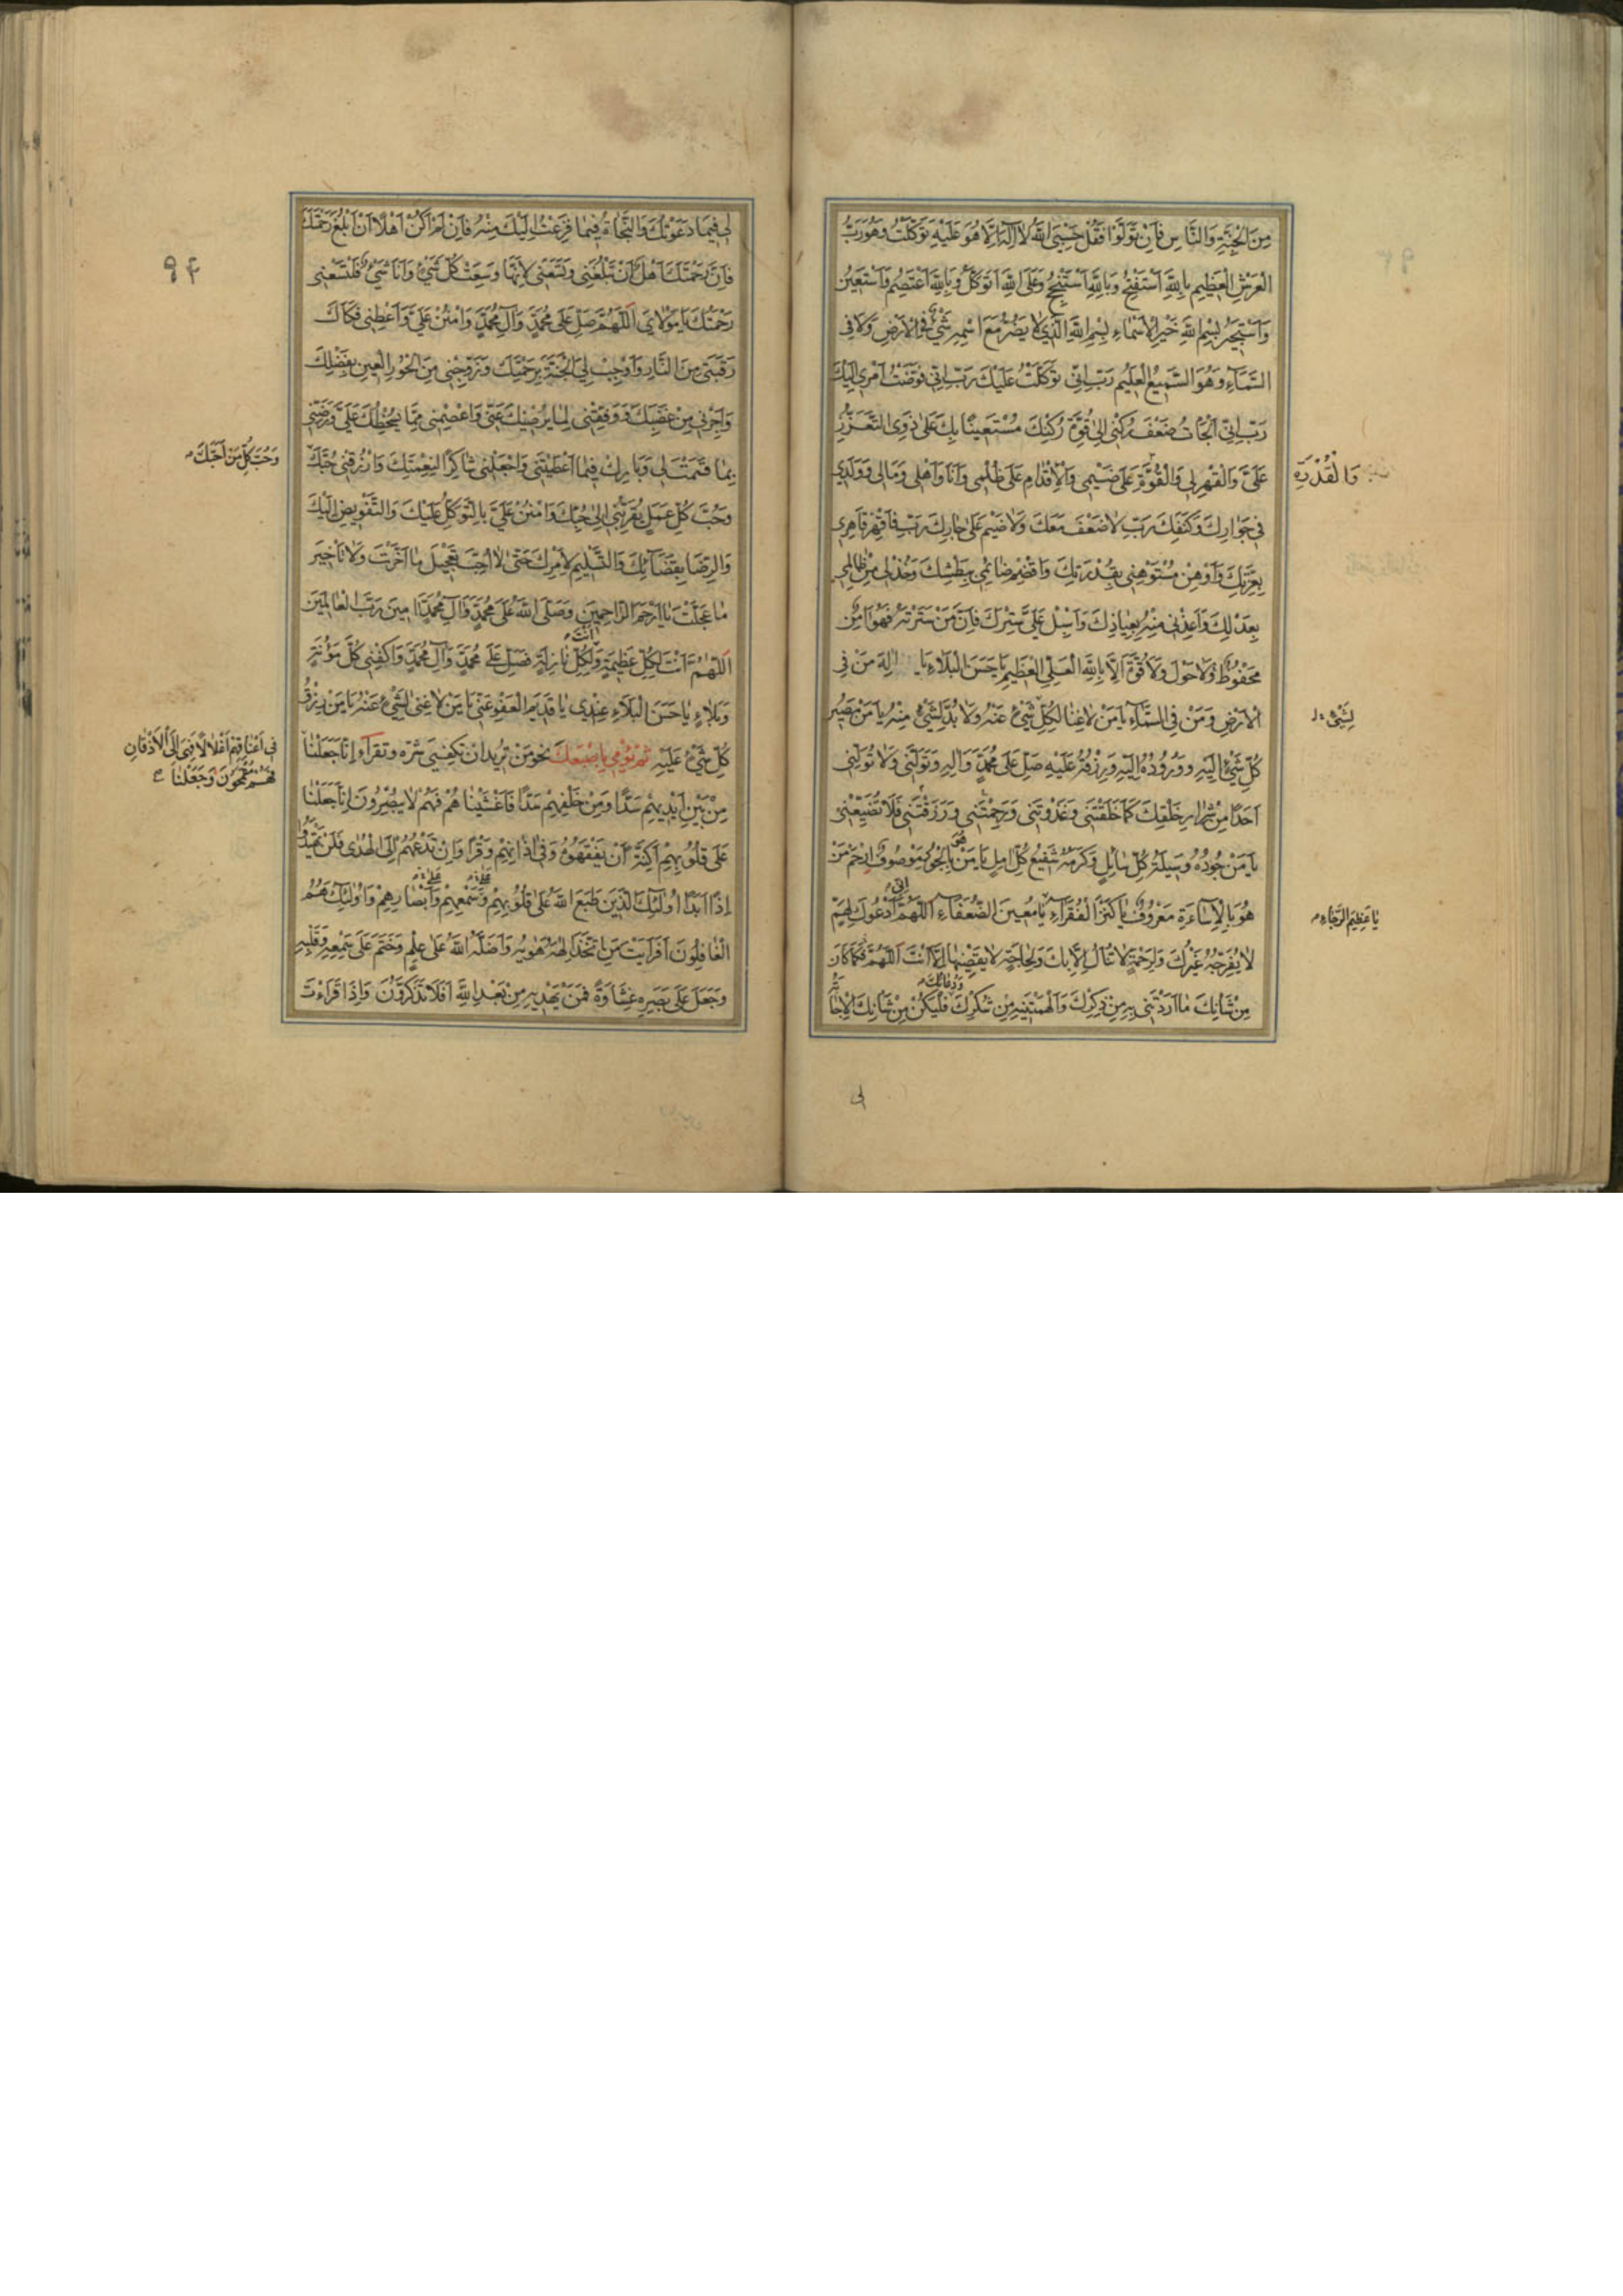 مِنَ الْجِنَّةِ وَالنَّاسِ فَاِنْ تَوَلَّوْا فَقُلْ حَسْبِيَ اللهُ لَا اِلٰهَ اِلَّا هُوَ عَلَيْهِ تَوَكَّلْتُ وَهُوَ رَبُّ
الْعَرْشِ الْعَظِيمِ بِاللهِ اَسْتَفْتِحُ وَبِاللهِ اَسْتَنْجِحُ وَعَلَى اللهِ اَتَوَكَّلُ وَبِاللهِ اَعْتَصِمُ وَاَسْتَعِينُ
وَاَسْتَجِيرُ بِسْمِ اللهِ خَيْرِ الْاَسْمَاءِ بِسْمِ اللهِ الَّذِي لَا يَضُرُّ مَعَ اسْمِهِ شَيْءٌ فِي الْاَرْضِ وَلَا فِي
السَّمَاءِ وَهُوَ السَّمِيعُ الْعَلِيمُ رَبِّ اِنِّي تَوَكَّلْتُ عَلَيْكَ رَبِّ اِنِّي فَوَّضْتُ اَمْرِي اِلَيْكَ
رَبِّ اِنِّي اَلْجَاْتُ ضَعْفَ رُكْنِي اِلٰى قُوَّةِ رُكْنِكَ مُسْتَعِينًا بِكَ عَلٰى ذَوِي التَّعَزُّزِ
عَلَيَّ وَالْقَهْرِ لِي وَالْقُوَّةِ عَلٰى ضَيْمِي وَالْاِقْدَامِ عَلٰى ظُلْمِي وَاَنَا وَاَهْلِي وَمَالِي وَوَلَدِي
وَالْقُدْرَةِ
فِي جَوَارِكَ وَكَنَفِكَ رَبِّ لَا ضَعْفَ مَعَكَ وَلَا ضَيْمَ عَلٰى جَارِكَ رَبِّ فَاقْهَرْ قَاهِرِي
بِعِزَّتِكَ وَاَوْهِنْ مُسْتَوْهِنِي بِقُدْرَتِكَ وَاقْصِمْ ضَائِمِي بِبَطْشِكَ وَخُذْ لِي مِنْ ظَالِمِي
بِعَدْلِكَ وَاَعِذْنِي مِنْهُ بِعِيَاذِكَ وَاَسْبِلْ عَلَيَّ سِتْرَكَ فَاِنَّ مَنْ سَتَرْتَهُ فَهُوَ اٰمِنٌ
مَحْفُوظٌ وَلَا حَوْلَ وَلَا قُوَّةَ اِلَّا بِاللهِ الْعَلِيِّ الْعَظِيمِ يَا حَسَنَ الْبَلَاءِ يَا اِلٰهَ مَنْ فِي
الْاَرْضِ وَمَنْ فِي السَّمَاءِ يَا مَنْ لَا غِنَا لِكُلِّ شَيْءٍ عَنْهُ وَلَا بُدَّ لِشَيْءٍ مِنْهُ يَا مَنْ مَصِيرُ
لِشَيْءٍ
كُلِّ شَيْءٍ اِلَيْهِ وَوُرُودُهُ اِلَيْهِ وَرِزْقُهُ عَلَيْهِ صَلِّ عَلٰى مُحَمَّدٍ وَاٰلِهِ وَتَوَلَّنِي وَلَا تُوَلِّنِي
اَحَدًا مِنْ شِرَارِ خَلْقِكَ كَمَا خَلَقْتَنِي وَغَذَوْتَنِي وَرَحِمْتَنِي وَرَزَقْتَنِي فَلَا تُضَيِّعْنِي
يَا مَنْ جُودُهُ وَسِيلَةُ كُلِّ سَائِلٍ وَكَرَمُهُ شَفِيعُ كُلِّ اٰمِلٍ يَا مَنْ هُوَ بِالْجُودِ مَوْصُوفٌ اِرْحَمْ مَنْ
هُوَ بِالْاِسَاءَةِ مَعْرُوفٌ يَا كَنْزَ الْفُقَرَاءِ يَا مُعِينَ الضُّعَفَاءِ اَللّٰهُمَّ اِنِّي اَدْعُوكَ لِهَمٍّ
يَا عَظِيمَ الرَّجَاءِ
لَا يُفَرِّجُهُ غَيْرُكَ وَلِرَحْمَةٍ لَا تُنَالُ اِلَّا بِكَ وَلِحَاجَةٍ لَا يَقْضِيهَا اِلَّا اَنْتَ اَللّٰهُمَّ فَكَمَا كَانَ
مِنْ شَاْنِكَ مَا اَرَدْتَنِي بِهِ مِنْ ذِكْرِكَ وَاَلْهَمْتَنِيهِ مِنْ شُكْرِكَ وَدُعَائِكَ فَلْيَكُنْ مِنْ شَاْنِكَ الْاِجَابَةُ
لِي
۹۴
لِي فِيمَا دَعَوْتُكَ وَالنَّجَاةُ فِيمَا فَزِعْتُ اِلَيْكَ مِنْهُ فَاِنْ لَمْ اَكُنْ اَهْلًا اَنْ اَبْلُغَ رَحْمَتَكَ
فَاِنَّ رَحْمَتَكَ اَهْلٌ اَنْ تَبْلُغَنِي وَتَسَعَنِي لِاَنَّهَا وَسِعَتْ كُلَّ شَيْءٍ وَاَنَا شَيْءٌ فَلْتَسَعْنِي
رَحْمَتُكَ يَا مَوْلَايَ اَللّٰهُمَّ صَلِّ عَلٰى مُحَمَّدٍ وَاٰلِ مُحَمَّدٍ وَامْنُنْ عَلَيَّ وَاَعْطِنِي فَكَاكَ
رَقَبَتِي مِنَ النَّارِ وَاَوْجِبْ لِيَ الْجَنَّةَ بِرَحْمَتِكَ وَزَوِّجْنِي مِنَ الْحُورِ الْعِينِ بِفَضْلِكَ
وَاَجِرْنِي مِنْ غَضَبِكَ وَوَفِّقْنِي لِمَا يُرْضِيكَ عَنِّي وَاعْصِمْنِي مِمَّا يُسْخِطُكَ عَلَيَّ وَرَضِّنِي
بِمَا قَسَمْتَ لِي وَبَارِكْ فِيمَا اَعْطَيْتَنِي وَاجْعَلْنِي شَاكِرًا لِنِعْمَتِكَ وَارْزُقْنِي حُبَّكَ
وَحُبَّ كُلِّ مَنْ اَحَبَّكَ
وَحُبَّ كُلِّ عَمَلٍ يُقَرِّبُنِي اِلٰى حُبِّكَ وَامْنُنْ عَلَيَّ بِالتَّوَكُّلِ عَلَيْكَ وَالتَّفْوِيضِ اِلَيْكَ
وَالرِّضَا بِقَضَائِكَ وَالتَّسْلِيمِ لِاَمْرِكَ حَتّٰى لَا اُحِبَّ تَعْجِيلَ مَا اَخَّرْتَ وَلَا تَاْخِيرَ
مَا عَجَّلْتَ يَا اَرْحَمَ الرَّاحِمِينَ وَصَلَّى اللهُ عَلٰى مُحَمَّدٍ وَاٰلِ مُحَمَّدٍ اٰمِينَ رَبَّ الْعَالَمِينَ
اَللّٰهُمَّ اَنْتَ لِكُلِّ عَظِيمَةٍ وَاَنْتَ لِكُلِّ نَازِلَةٍ فَصَلِّ عَلٰى مُحَمَّدٍ وَاٰلِ مُحَمَّدٍ وَاكْفِنِي كُلَّ مَؤُنَةٍ
وَبَلَاءٍ يَا حَسَنَ الْبَلَاءِ عِنْدِي يَا قَدِيمَ الْعَفْوِ عَنِّي يَا مَنْ لَا غِنٰى لِشَيْءٍ عَنْهُ يَا مَنْ رِزْقُ
كُلِّ شَيْءٍ عَلَيْهِ ثُمَّ تُؤْمِي بِاِصْبَعِكَ نَحْوَ مَنْ تُرِيدُ اَنْ تَكْفِيَ شَرَّهُ وَتَقْرَاُ اِنَّا جَعَلْنَا
فِي اَعْنَاقِهِمْ اَغْلَالًا فَهِيَ اِلَى الْاَذْقَانِ
فَهُمْ مُقْمَحُونَ وَجَعَلْنَا
مِنْ بَيْنِ اَيْدِيهِمْ سَدًّا وَمِنْ خَلْفِهِمْ سَدًّا فَاَغْشَيْنَاهُمْ فَهُمْ لَا يُبْصِرُونَ اِنَّا جَعَلْنَا
عَلٰى قُلُوبِهِمْ اَكِنَّةً اَنْ يَفْقَهُوهُ وَفِي اٰذَانِهِمْ وَقْرًا وَاِنْ تَدْعُهُمْ اِلَى الْهُدٰى فَلَنْ يَهْتَدُوا
اِذًا اَبَدًا اُولٰئِكَ الَّذِينَ طَبَعَ اللهُ عَلٰى قُلُوبِهِمْ وَسَمْعِهِمْ وَاَبْصَارِهِمْ وَاُولٰئِكَ هُمُ
الْغَافِلُونَ اَفَرَاَيْتَ مَنِ اتَّخَذَ اِلٰهَهُ هَوٰيهُ وَاَضَلَّهُ اللهُ عَلٰى عِلْمٍ وَخَتَمَ عَلٰى سَمْعِهِ وَقَلْبِهِ
وَجَعَلَ عَلٰى بَصَرِهِ غِشَاوَةً فَمَنْ يَهْدِيهِ مِنْ بَعْدِ اللهِ اَفَلَا تَذَكَّرُونَ وَاِذَا قَرَاْتَ